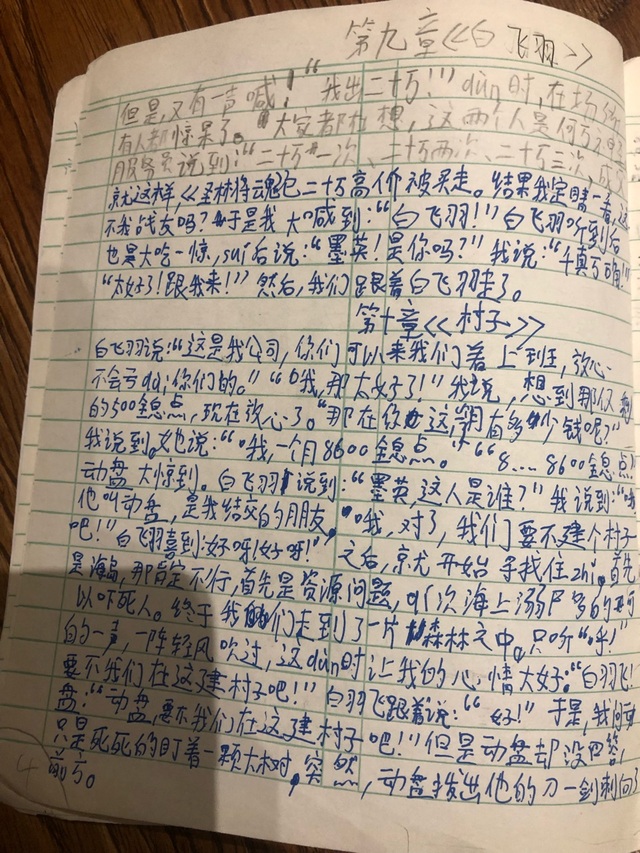 第九章《白飞羽》
但是,又有一声喊!“我出二十万!”dùn时,在场所
有人都惊呆了。大家都在想,这两个人是何方
服务员说到:“二十万一次、二十万两次、二十万三次,成
就这样,《圣林将魂》已二十万高价被买走。结果我定睛一看,这
不我战友吗?于是我大喊到:“白飞羽!”白飞羽听到后
也是大吃一惊,suí后说:“墨英!是你吗?”我说:“千真万确!”
“太好了!跟我来!”然后,我们跟着白飞羽走了。
第十章《村子》
白飞羽说:“这是我公司,你们可以来我们着上班,放心
不会亏dài你们的。”“哦,那太好了!”我说,想到那仅剩
的500鎴点,现在放心了。“那在你这期有多少钱呢?”
我说到。她说:“哦,一个月8600鎴点。”“8....8600鎴点”
动盘大惊到。白飞羽说到:“墨英,这人是谁?”我说到:“哦
他叫动盘,是我结交的朋友。”“哦,对了,我们要不建个村子
吧!”白飞羽喜到:“好呀!好呀!”之后,就开始寻找住zhǐ。首先
是海岛,那肯定不行,首先是资源问题,qí次海上溺尸多的可
以吓死人。终于我们走到了一片森林之中。只听“呼!”
的一声,一阵轻风吹过,这dùn时让我的心情大好:“白羽飞!
要不我们在这建村子吧!”白羽飞跟着说:“好!”于是,我问动
盘:“动盘,要不我们在这建村子吧!”但是动盘却没回答,
只是死死的盯着一颗大树,突然,动盘拨出他的刀一剑刺向了
前方。
4